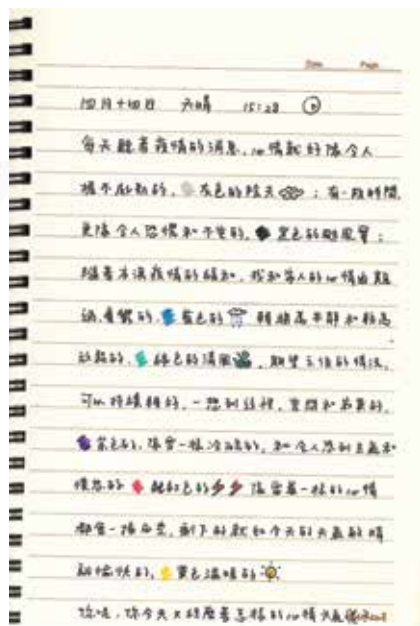 Date Page
四月十四日 天晴 15:28
每天聽著疫情的消息,心情就好像令人
提不起勁的,灰色的陰天;有一段時間,
更像令人恐懼和不安的,黑色的颱風;
隨著本澳疫情的緩和,我和家人的心情由
的,藍色的 轉換為平靜和
的,綠色的清風,期望之後的情況,
可以持續轉好,一想到這裡,
紫色的,像雪一樣冷 的,和令人感到生氣和
憤怒的 紅色的 像雷暴一樣的心情
都會一掃而空,剩下的就和今天的天氣的晴
朗愉快的,黃色溫暖的
你呢,你今天又經歷著怎樣的心情天氣